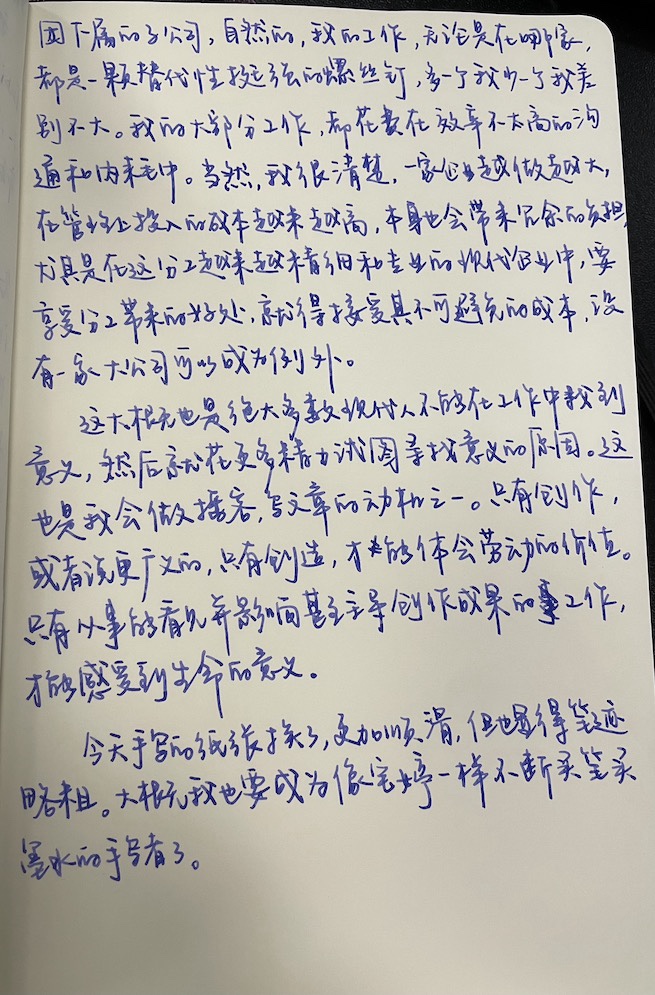 团下属的子公司，自然的，我的工作，无论是在哪家，
都是一颗替代性极强的螺丝钉，多一个我少一个我差
别不大。我的大部分工作，都花费在效率不太高的沟
通和内耗中。当然，我很清楚，一家企业越做越大，
在管理上投入的成本越来越高，本身也会带来冗余的负担，
尤其是在这分工越来越精细和专业的现代企业中，要
享受分工带来的好处，就得接受其不可避免的成本，没
有一家大公司可以成为例外。
这大概也是绝大多数现代人不能在工作中找到
意义，然后就花更多精力试图寻找意义的原因。这
也是我会做播客，写文章的动机之一。只有创作，
或者说更广义的，只有创造，才能体会劳动的价值。
只有从事能看见并影响甚至主导创作成果的工作，
才能感受到生命的意义。
今天手写的纸张换了，更加顺滑，但也显得笔迹
略粗。大概我也要成为像宝婷一样不断买笔买
墨水的手写者了。